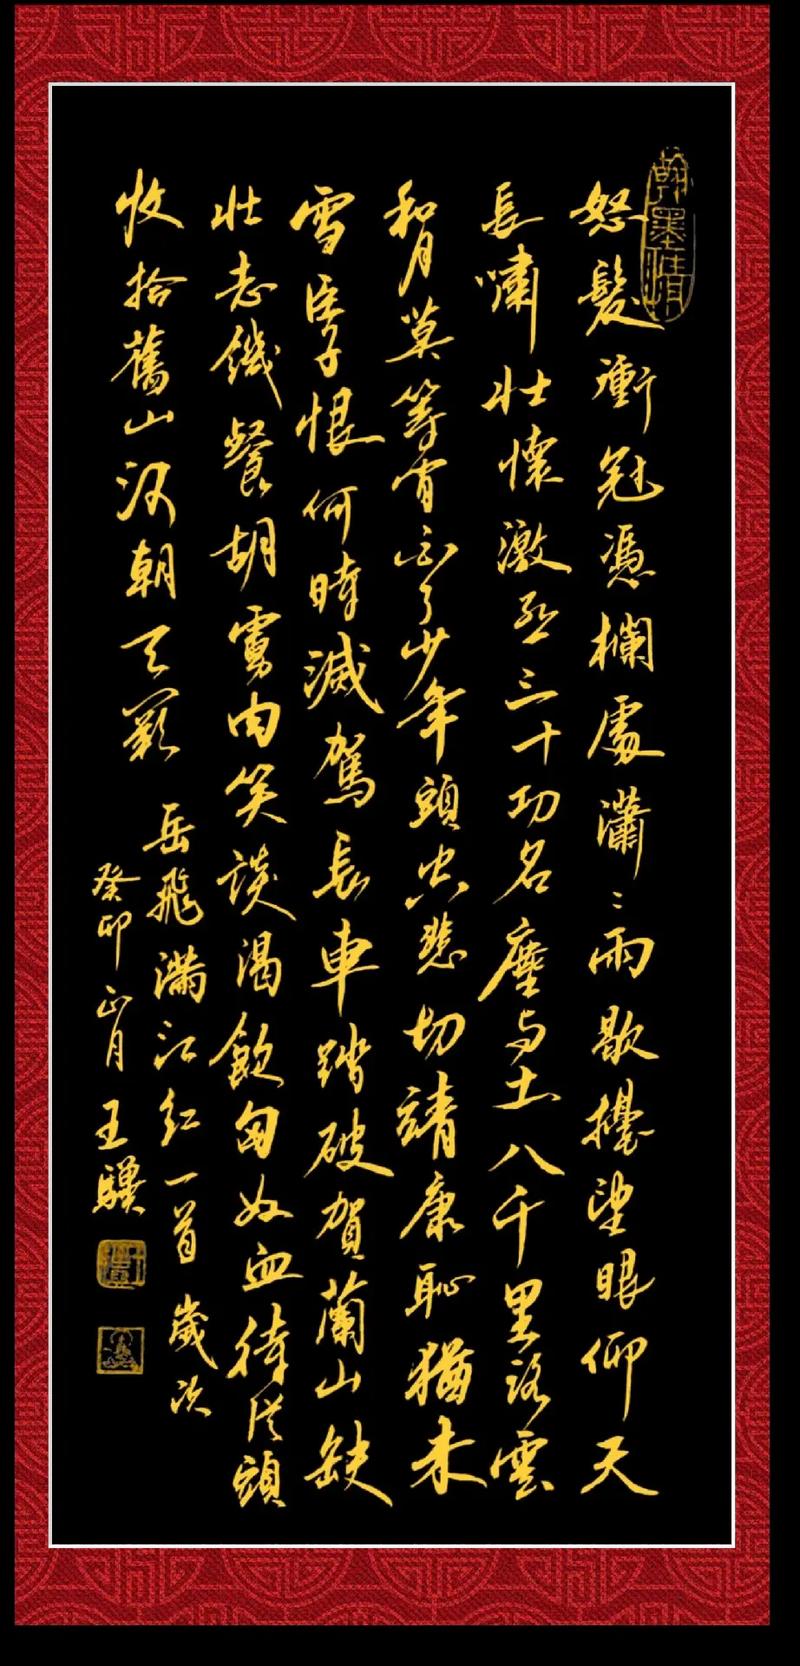 翰墨
怒髮衝冠憑欄處瀟〻雨歇擡望眼仰天
長嘯壯懷激烈三十功名塵与土八千里路雲
和月莫等閒白了少年頭空悲切靖康恥猶未
雪臣子恨何時滅駕長車踏破賀蘭山缺
壯志饑餐胡虜肉笑談渴飲匈奴血待從頭
收拾舊山河朝天闕
岳飛滿江紅一首歲次
癸卯正月王驥